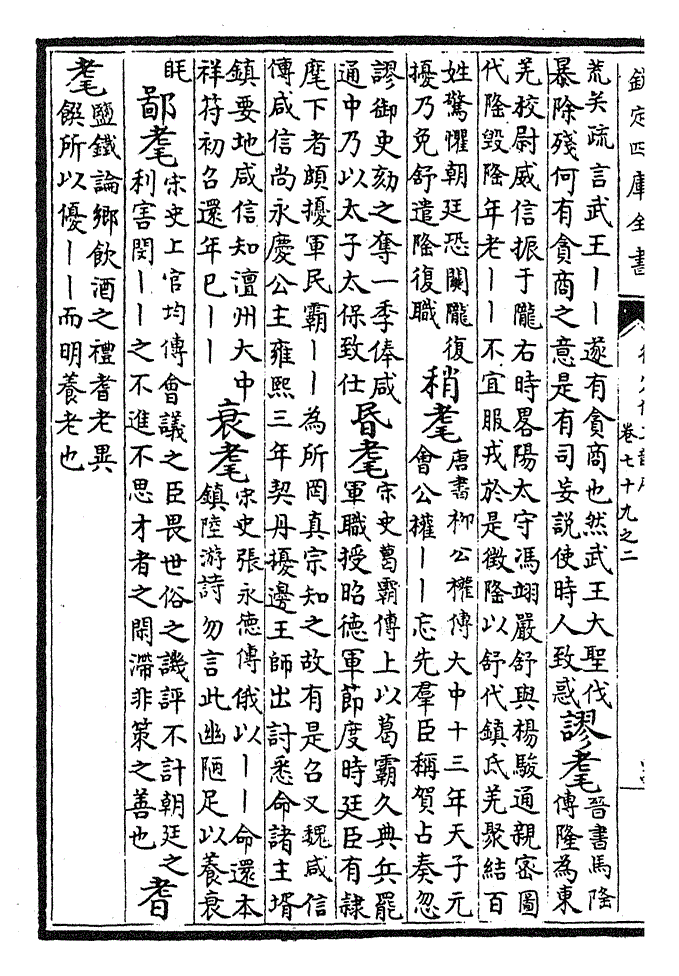 欽定四庫全書
卷七十九之二
荒关疏言武王丨丨遂有貪商也然武王大聖伐
暴除殘何有貪商之意是有司妄説使時人致惑
謬耄
晉書馬隆
傳隆為東
羌校尉威信振于隴右時畧陽太守馮翊嚴舒與楊駿通親密圖
代隆毁隆年老丨丨不宜服戎於是徵隆以舒代鎮氐羌聚結百
姓驚懼朝廷恐闗隴復
擾乃免舒遣隆復職
稍耄
唐書栁公權傳大中十三年天子元
會公權丨丨忘先羣臣稱賀占奏忽
謬御史劾之奪一季俸咸
通中乃以太子太保致仕
昬耄
宋史葛霸傳上以葛霸久典兵罷
軍職授昭德軍節度時廷臣有隷
麾下者頗擾軍民霸丨丨為所罔真宗知之故有是召又魏咸信
傳咸信尚永慶公主雍熙三年契丹擾邊王師出討悉命諸主壻
鎮要地咸信知澶州大中
祥符初召還年已丨丨
衰耄
宋史張永德傳俄以丨丨命還本
鎮陸游詩勿言此幽陋足以養衰
眊
鄙耄
宋史上官均傳會議之臣畏世俗之譏評不計朝廷之
利害閔丨丨之不進不思才者之閑滯非策之善也
耆
耄
鹽鐵論鄉飲酒之禮耆老異
饌所以優丨丨而明養老也